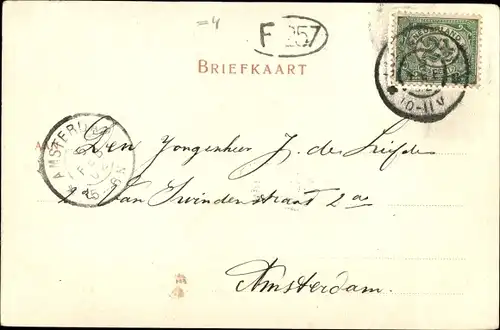 =4
F 257
BRIEFKAART
NEDERLAND
2½
10-11V
AMSTERDAM
Den Jongenheer J. de Liefde
v. Swindenstraat 2a
Amsterdam.